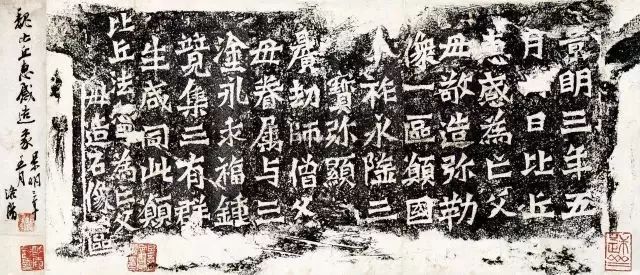 景明三年五
月日比丘
惠感為亡父
母敬造弥勒
像一區願國
祚永隆三
寶弥顯
曠劫師僧父
母眷属与三
塗永乖福鍾
竟集三有群
生咸同此願
比丘法為亡父
母造石像區
魏比丘惠感造象
景明三年
五月